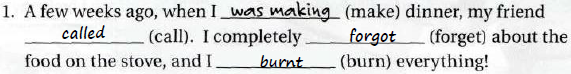 1. A few weeks ago, when I was making (make) dinner, my friend
called (call). I completely forgot (forget) about the
food on the stove, and I burnt (burn) everything!